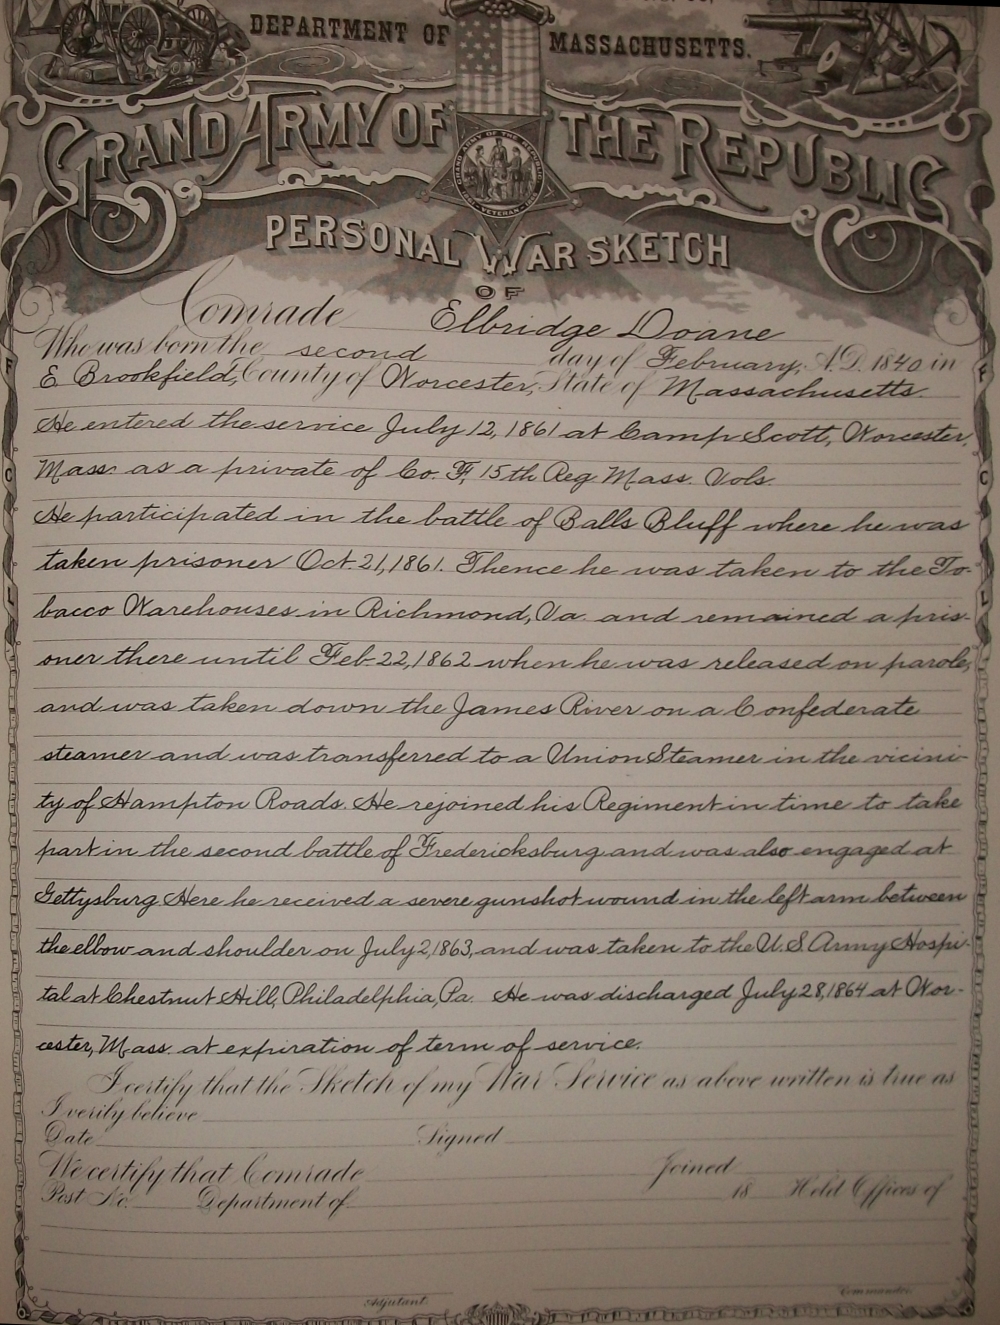 DEPARTMENT OF MASSACHUSETTS.
GRAND ARMY OF THE REPUBLIC
GRAND ARMY OF THE REPUBLIC
VETERAN
PERSONAL WAR SKETCH
OF
Comrade Elbridge Doane
Who was born the second day of February, A.D. 1840 in
E Brookfield, County of Worcester, State of Massachusetts.
He entered the service July 12, 1861 at Camp Scott, Worcester,
Mass. as a private of Co. F, 15th Reg Mass. Vols.
He participated in the battle of Balls Bluff where he was
taken prisoner Oct. 21, 1861. Thence he was taken to the To-
bacco Warehouses in Richmond, Va. and remained a pris-
oner there until Feb-22, 1862 when he was released on parole,
and was taken down the James River on a Confederate
steamer and was transferred to a Union Steamer in the vicini-
ty of Hampton Roads. He rejoined his Regiment in time to take
part in the second battle of Fredericksburg and was also engaged at
Gettysburg. Here he received a severe gunshot wound in the left arm between
the elbow and shoulder on July 2, 1863, and was taken to the U.S. Army Hospi-
tal at Chestnut Hill, Philadelphia, Pa. He was discharged July 28, 1864 at Wor-
cester, Mass. at expiration of term of service.
I certify that the Sketch of my War Service as above written is true as
I verily believe
Date Signed
We certify that Comrade Joined
Post No. Department of 18 Held Offices of
Adjutant. Commander
F
C
L
F
C
L